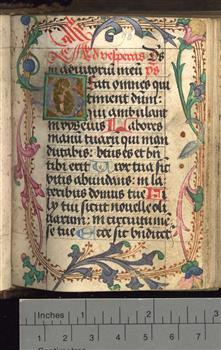 Ad vesperas Ds
in adiutoriū meū ps
Beati omnes qui
timent dūm:
qui ambulant
in vijs eius Labores
manuū tuarū qui man
ducabis: beatus es et bn
tibi erit Uxor tua sic
vitis abūdans: in la
teribus domus tue Fi
lij tui sicut nouelle oli
uarum: in circuitu me
se tue Ecce sic bn̄dicet᷑
Inches 1 2 3
1 2 3 4 5 6 7
Centimetres